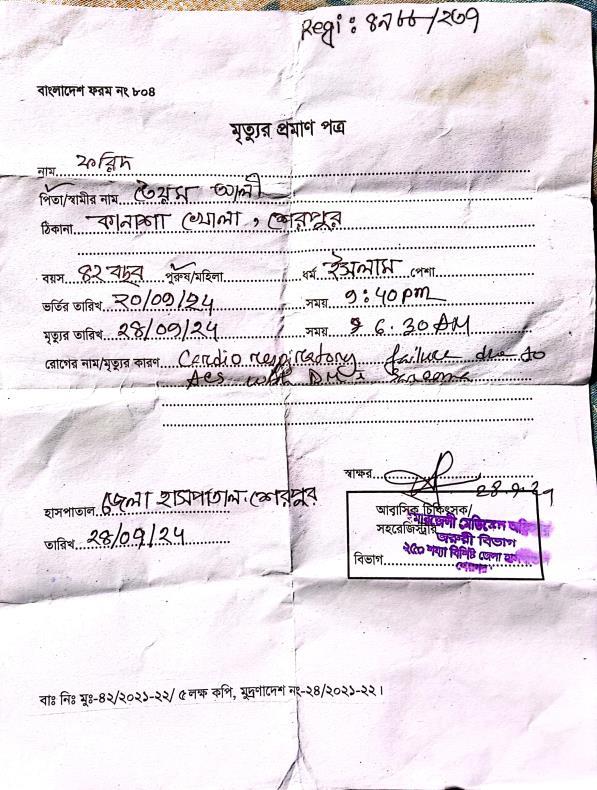 Regi: ৪৯৮৮/২৩৭
বাংলাদেশ ফরম নং ৮০৪
মৃত্যুর প্রমাণ পত্র
নাম
পিতা/স্বামীর নাম আলী
ঠিকানা খোলা, শেরপুর
বয়স ৪২ বছর পুরুষ/মহিলা ধর্ম ইসলাম পেশা
ভর্তির তারিখ ২০/০৭/২৪ সময় ৭:40 pm
মৃত্যুর তারিখ ২৪/০৭/২৪ সময় 6.30 AM
রোগের নাম/মৃত্যুর কারণ Cardio respiratory failure due to
ACS with DM
স্বাক্ষর
হাসপাতাল জেলা হাসপাতাল, শেরপুর
আবাসিক চিকিৎসক/
সহরেজিস্ট্রার
জরুরী বিভাগ
তারিখ ২৪/০৭/২৪
২৫০ শয্যা বিশিষ্ট জেলা
বিভাগ
বাঃ নিঃ মুঃ-৪২/২০২১-২২/ ৫ লক্ষ কপি, মুদ্রণাদেশ নং-২৪/২০২১-২২।